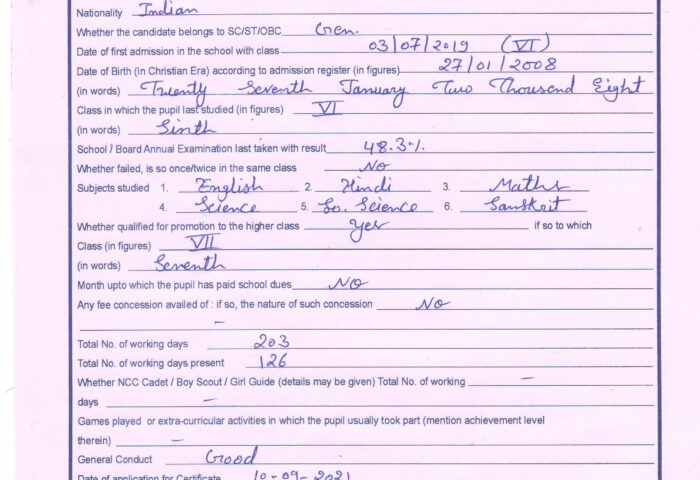 Nationality Indian
Whether the candidate belongs to SC/ST/OBC Gen.
Date of first admission in the school with class 03/07/2019 (VI)
Date of Birth (In Christian Era) according to admission register (in figures) 27/01/2008
(in words) Twenty Seventh January Two Thousand Eight
Class in which the pupil last studied (in figures) VI
(in words) Sixth
School / Board Annual Examination last taken with result 48.3%.
Whether failed, is so once/twice in the same class No
Subjects studied 1. English 2. Hindi 3. Maths
4. Science 5. So. Science 6. Sanskrit
Whether qualified for promotion to the higher class yes if so to which
Class (in figures) VII
(in words) Seventh
Month upto which the pupil has paid school dues NO
Any fee concession availed of : if so, the nature of such concession NO
–
Total No. of working days 203
Total No. of working days present 126
Whether NCC Cadet / Boy Scout / Girl Guide (details may be given) Total No. of working –
days –
Games played or extra-curricular activities in which the pupil usually took part (mention achievement level
therein) –
General Conduct Good
Date of application for Certificate 10-09-2021